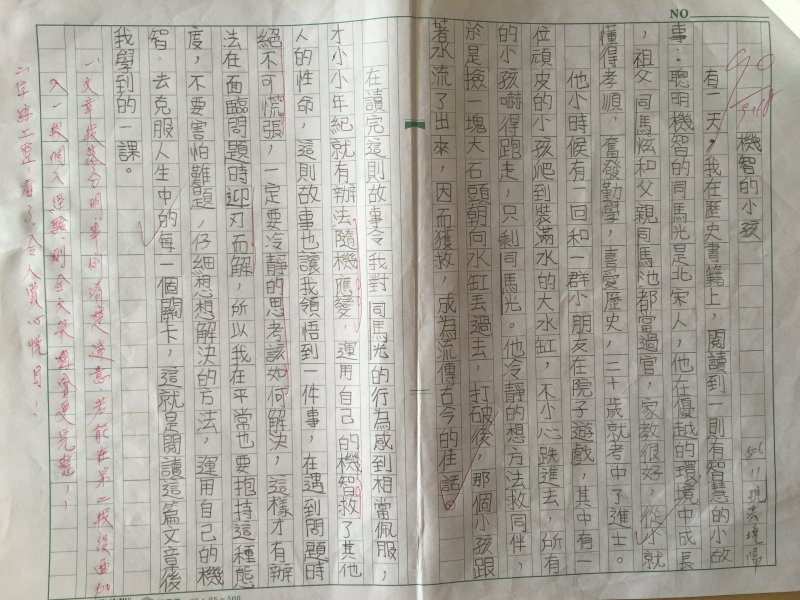 NO
90
機智的小孩
有一天，我在歷史書籍上，閱讀到一則有智慧的小故
事：聰明機智的司馬光是北宋人，他在優越的環境中成長
，祖父司馬炫和父親司馬池都當過官，家教很好，從小就
懂得孝順，奮發勤學，喜愛歷史，二十歲就考中了進士。
他小時候有一回和一群小朋友在院子遊戲，其中有一
位頑皮的小孩爬到裝滿水的大水缸，不小心跌進去，所有
的小孩嚇得跑走，只剩司馬光。他冷靜的想方法救同伴，
於是撿一塊大石頭朝向水缸丟過去，打破後，那個小孩跟
著水流了出來，因而獲救，成為流傳古今的佳話。
在讀完這則故事令我對司馬光的行為感到相當佩服，
才小小年紀就有辦法隨機應變，運用自己的機智救了其他
人的性命，這則故事也讓我領悟到一件事，在遇到問題時
絕不可慌張，一定要冷靜的思考該如何解決，這樣才有辦
法在面臨問題時迎刃而解，所以我在平常也要抱持這種態
度，不要害怕難題，仔細想想解決的方法，運用自己的機
智，去克服人生中的每一個關卡，這就是閱讀這篇文章後
我學到的一課。
一、文章段落分明，事例清楚達意，若能在第二段後面加
入一段個人經驗，則全文架構會更完整！
二、字跡工整，看了令人賞心悅目！